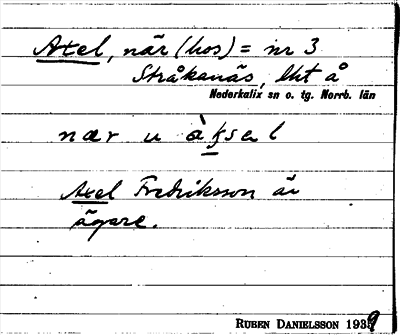 Axel, när (hos) = nr 3
Stråkanäs, lht å
Nederkalix sn o. tg. Norrb. län
nær u àksel
Axel Fredriksson är
ägare.
RUBEN DANIELSSON 1939